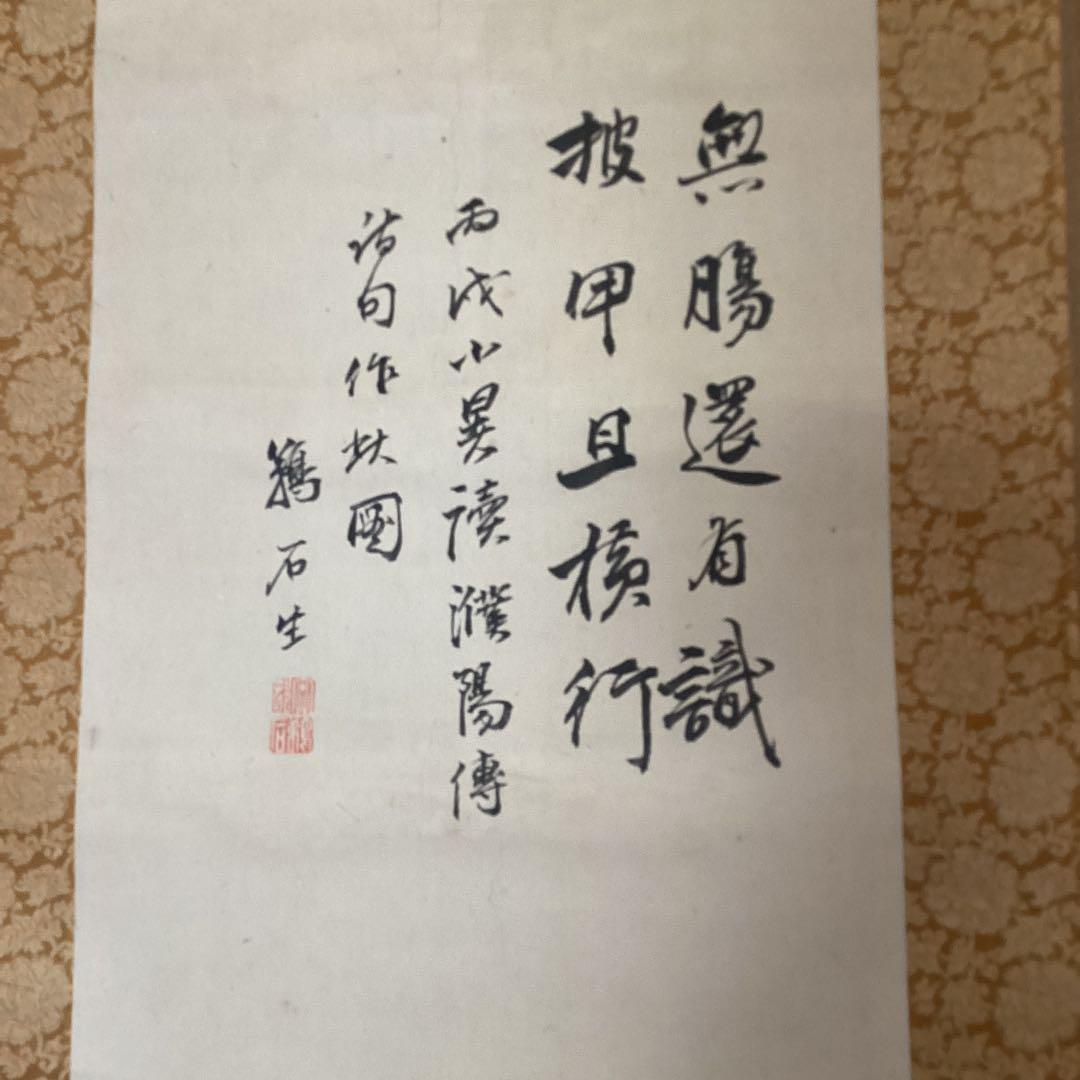 無腸還有識
披甲且橫行
丙戌小暑讀濮陽傳
詩句作此圖
鶴石生